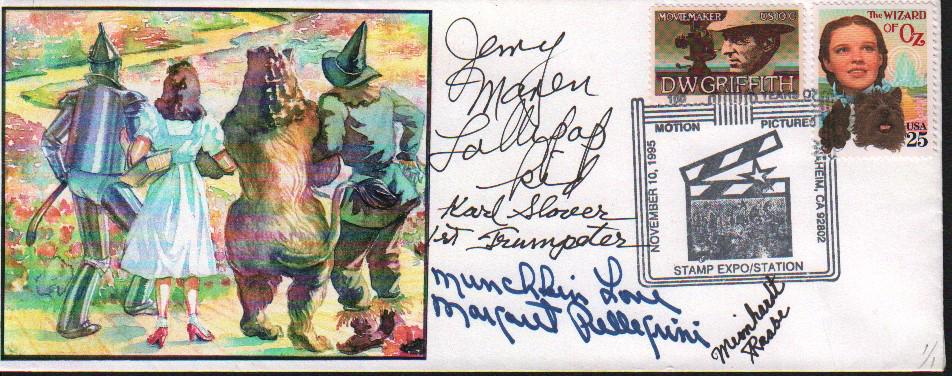 Jerry
Maren
Lollypop
kid
Karl Slover
1st Trumpeter
Munchkin Love
Margaret Pellegrini
Meinhardt
Raabe
MOVIEMAKER US 10c
DW GRIFFITH
The WIZARD
OF OZ
USA
25
100 YEARS O
MOTION PICTURES
NOVEMBER 10, 1995
HEIM, CA 92802
STAMP EXPO/STATION
1/1